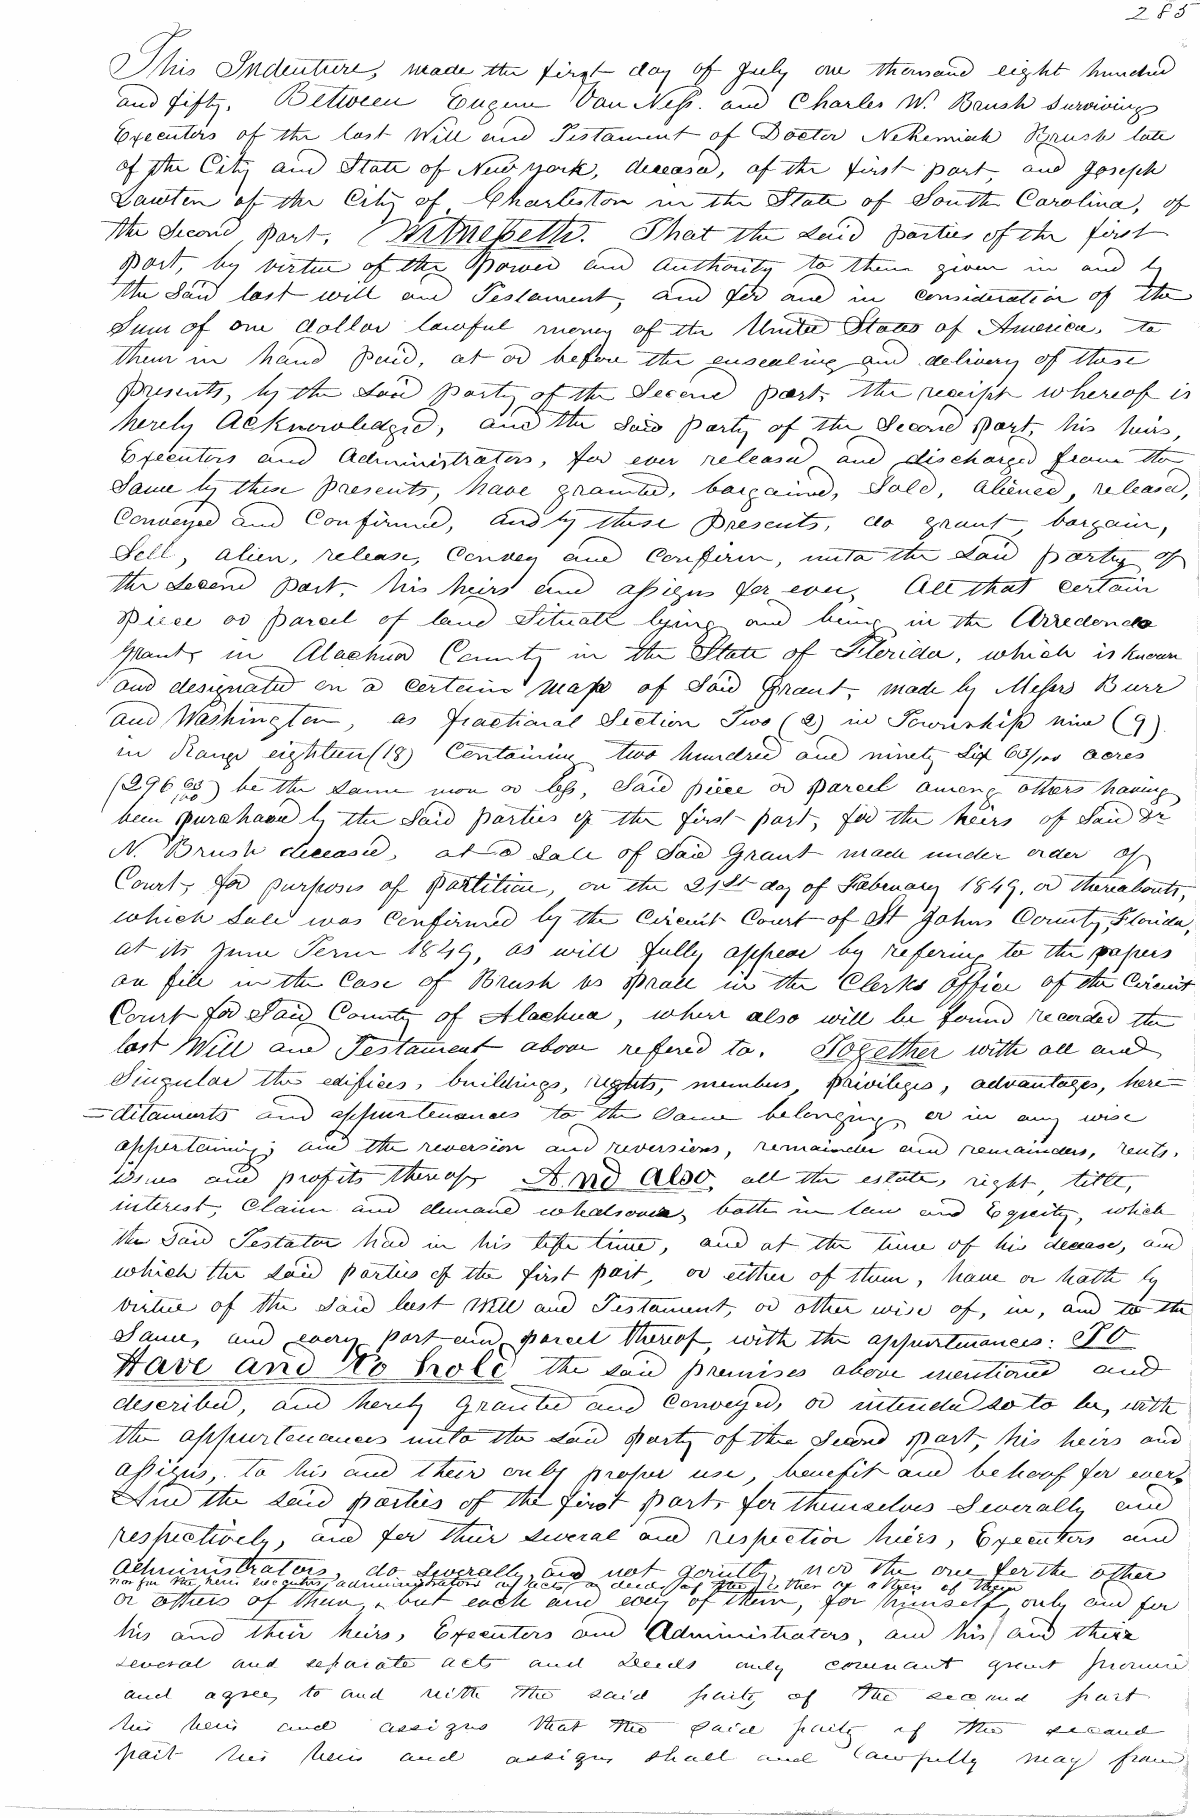 285
This Indenture, made the first day of July one thousand eight hundred
and fifty. Between Eugene Van Ness. and Charles W. Brush surviving
Executors of the last Will and Testament of Doctor Nehemiah Brush late
of the City and State of New York, deceased, of the first part, and Joseph
Lawton of the City of Charleston in the State of South Carolina, of
the Second part. Witnesseth. That the said parties of the first
part, by virtue of the power and authority to them given in and by
the said last will and Testament, and for and in consideration of the
Sum of one dollar lawful money of the United States of America, to
them in hand paid, at or before the ensealing and delivery of these
presents, by the said party of the Second part, the receipt whereof is
hereby Acknowledged, and the said party of the Second part, his heirs,
Executors and Administrators, for ever released and discharged from the
Same by these presents, have granted, bargained, Sold, aliened, released,
Conveyed and Confirmed, and by these presents, do grant, bargain,
Sell, alien, release, Convey and Confirm, unto the said party of
the second part, his heirs and assigns for ever, All that certain
piece or parcel of land Situate lying and being in the Arredondo
Grant, in Alachua County in the State of Florida, which is known
and designated on a certain map of said Grant, made by Messrs Burr
and Washington, as fractional Section Two (2) in Township nine (9)
in Range eighteen (18) Containing two hundred and ninety Six 63/100 acres
(296 63/100) be the same more or less, said piece or parcel among others having
been purchased by the said parties of the first part, for the heirs of said Dr
N. Brush deceased, at a sale of said Grant made under order of
Court, for purposes of partition, on the 21st day of February 1849, or thereabouts,
which sale was confirmed by the Circuit Court of St Johns County, Florida,
at its June Term 1849, as will fully appear by refering to the papers
on file in the Case of Brush vs Prall in the Clerks Office of the Circuit
Court for said County of Alachua, where also will be found recorded the
last Will and Testament above refered to. Together with all and
Singular the edifices, buildings, rights, members, privileges, advantages, here=
=ditaments and appurtenances to the same belonging, or in any wise
appertaining; and the reversion and reversions, remainder and remainders, rents,
issues and profits thereof, And also, all the estate, right, title,
interest, Claim and demand whatsoever, both in law and Equity, which
the said Testator had in his life time, and at the time of his decease, and
which the said parties of the first part, or either of them, have or hath by
virtue of the said last Will and Testament, or other wise of, in, and to the
Same, and every part and parcel thereof, with the appurtenances: To
Have and To hold the said premises above mentioned and
described, and hereby granted and conveyed, or intended so to be, with
the appurtenances unto the said party of the Second part, his heirs and
assigns, to his and their only proper use, benefit and behoof for ever.
And the said parties of the first part, for themselves Severally and
respectively, and for their several and respective heirs, Executors and
Administrators, do severally, and not jointly, nor the one for the other
nor for the heirs executors administrators or acts or deeds of the other or others of them
or others of them, but each and every of them, for himself only and for
his and their heirs, Executors and Administrators, and his and their
several and separate acts and deeds only covenant grant promise
and agree, to and with the said party of the second part
his heirs and assigns that the said party of the second
part his heirs and assigns shall and lawfully may from